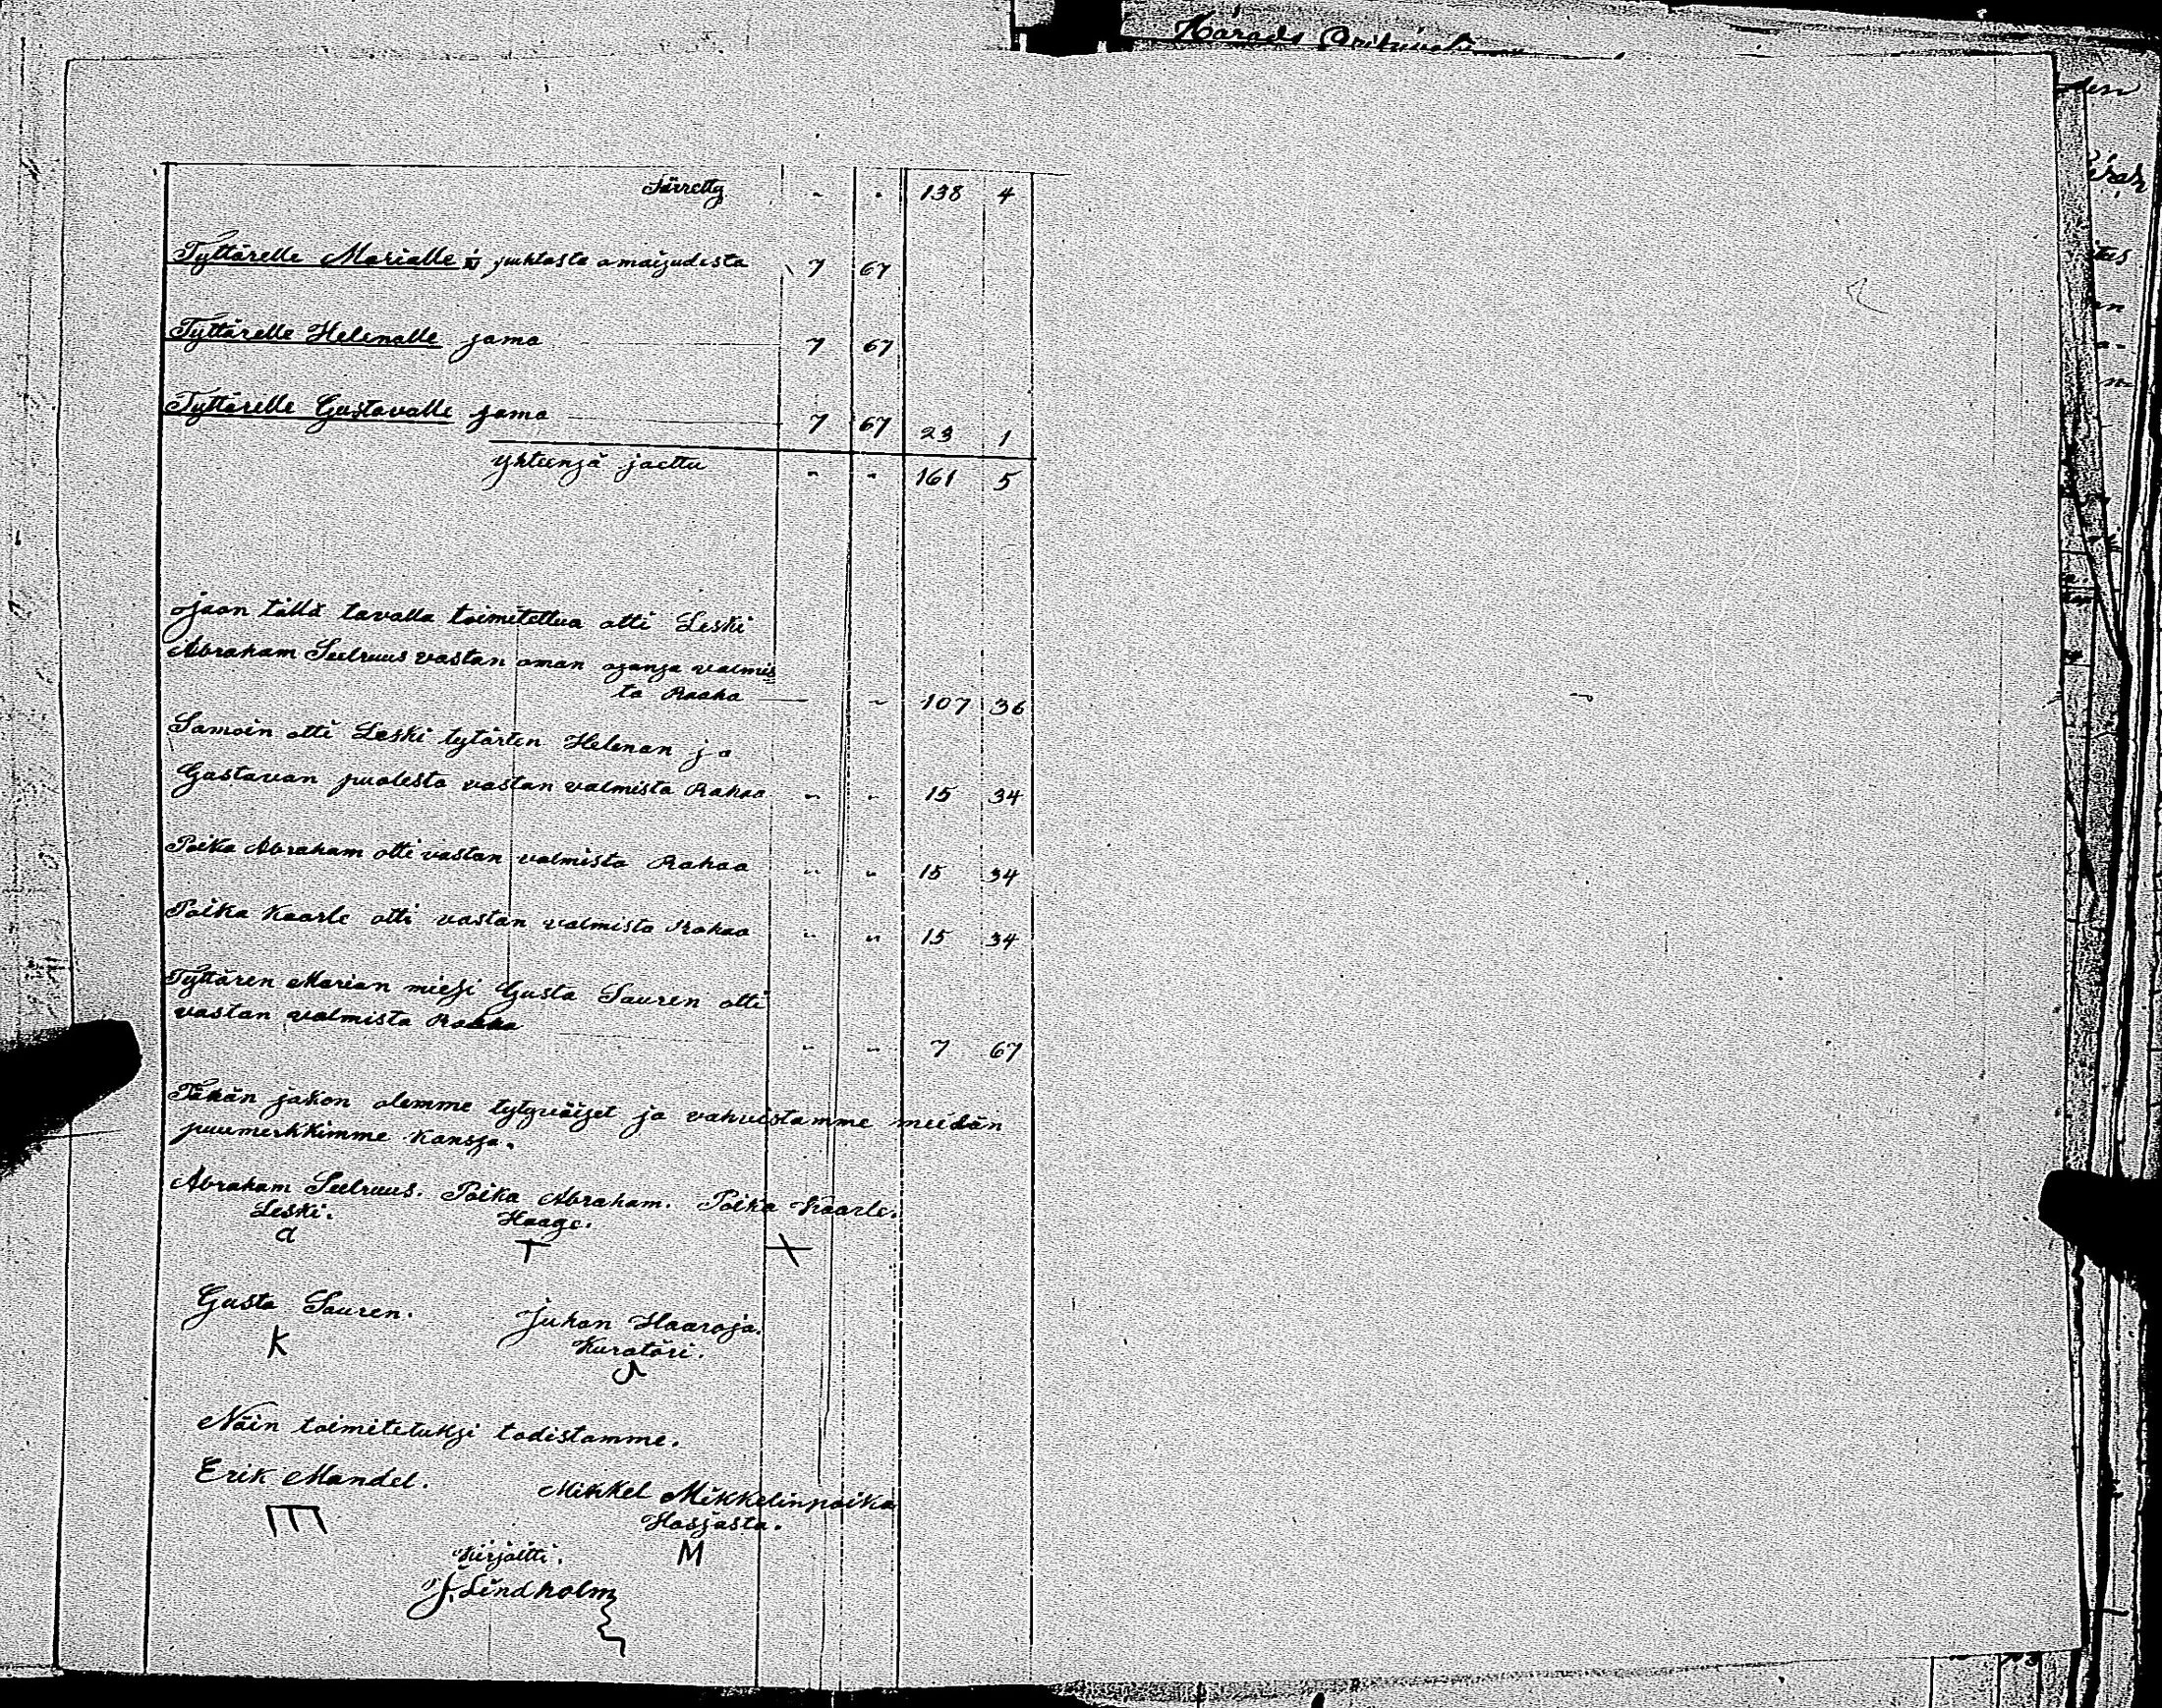 Siirretty - - 138 4
Tyttärelle Marialle puhtasta omaisudesta 7 67
Tyttärelle Helenalle sama 7 67
Tyttärelle Gustavalle sama 7 67 23 1
yhteensä jaettu - - 161 5
Jaon tällä tavalla toimitettua otti Leski
Abraham Seelruus vastan oman osansa valmis
ta Raaha - 107 36
Samoin otti Leski tytärten Helenan ja
Gustavan puolesta vastan valmista Rahaa - - 15 34
Poika Abraham otti vastan valmista Rahaa - - 15 34
Poika Kaarle otti vastan valmista Rahaa - - 15 34
Tyttären Marian miesi Gusta Sauren otti
vastan valmista Raaha
- - 7 67
Tähän jakon olemme tytyväiset ja vahvistamme meidän
puumerkkimme kanssa.
Abraham Seelruus. Poika Abraham. Poika Kaarle.
Leski. Haage.
Gusta Sauren. Juhan Haaroja.
K Kuratöri.
Näin toimitetuksi todistamme.
Erik Mandel. Mikkel Mikkelinpoika
Hossasta.
Kirjoitti. M
J. Lindholm